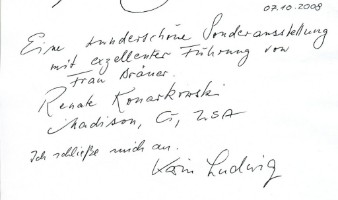 07.10.2008
Eine wunderschöne Sonderausstellung
mit exzellenter Führung von
Frau Bräuer.
Renate Konarkowski
Madison, Ct, USA
Ich schließe mich an.
Karin Ludwig